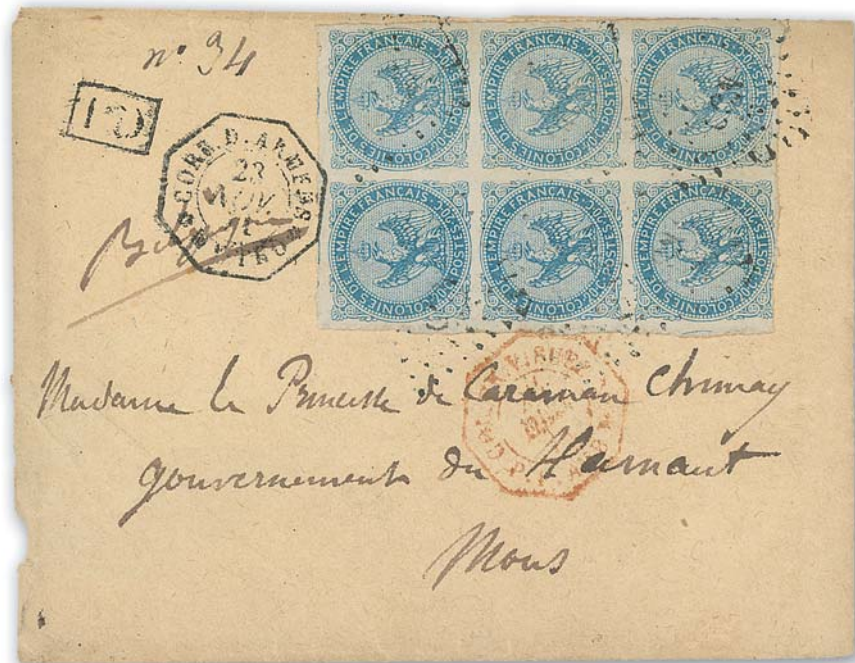 n° 34
PD
CORR. D. ARMEES
23
NOV
COLONIES DE L'EMPIRE FRANÇAIS POSTES 20 C
COLONIES DE L'EMPIRE FRANÇAIS POSTES 20 C
COLONIES DE L'EMPIRE FRANÇAIS POSTES 20 C
COLONIES DE L'EMPIRE FRANÇAIS POSTES 20 C
COLONIES DE L'EMPIRE FRANÇAIS POSTES 20 C
COLONIES DE L'EMPIRE FRANÇAIS POSTES 20 C
Madame la Princesse de Caraman Chimay
gouvernement du Hainaut
Mons